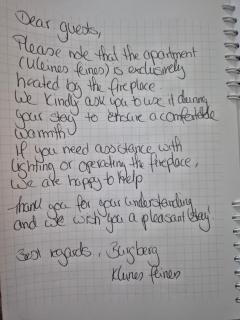 Dear guests,
Please note that the apartment
(Kleines feines) is exclusively
heated by the fireplace.
We kindly ask you to use it during
your stay to ensure a comfortable
warmth.
If you need assistance with
lighting or operating the fireplace,
we are happy to help
Thank you for your understanding
and we wish you a pleasant stay!
Best regards, Burgberg
Kleines feines